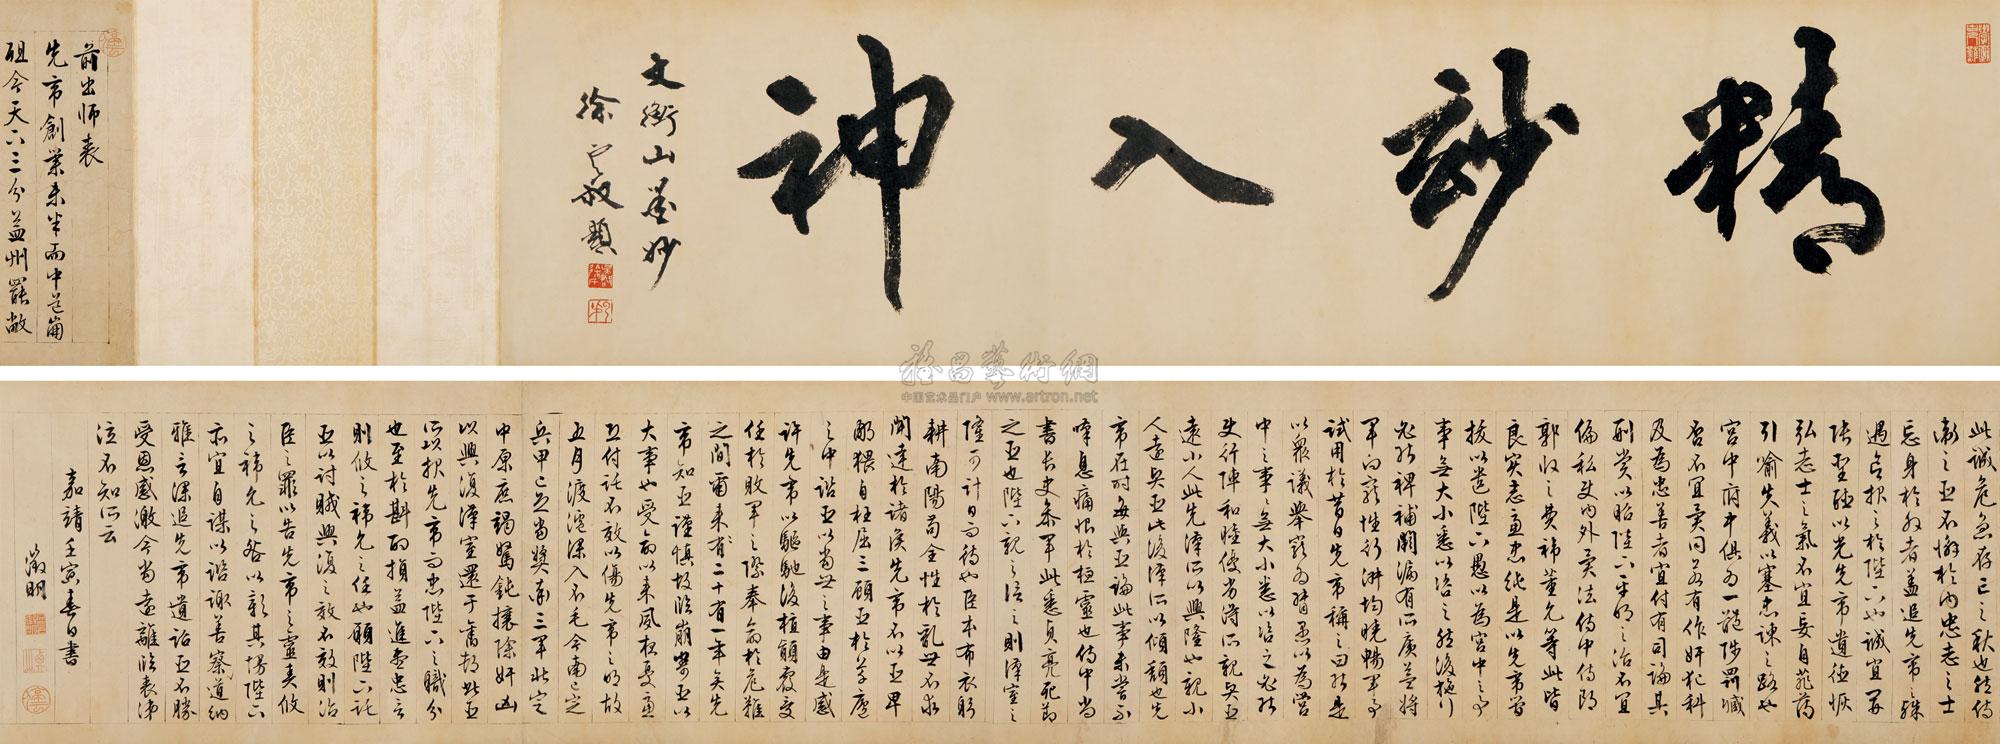 精妙入神
文衡山墨妙
前出師表
先帝創業未半而中道崩
殂今天下三分益州罷敝
此誠危急存亡之秋也然侍
衛之臣不懈於內忠志之士
忘身於外者蓋追先帝之殊
遇欲報之於陛下也誠宜開
張聖聽以光先帝遺德恢
弘志士之氣不宜妄自菲薄
引喻失義以塞忠諫之路也
宮中府中俱為一體陟罰臧
否不宜異同若有作奸犯科
及為忠善者宜付有司論其
刑賞以昭陛下平明之治不宜
偏私使內外異法侍中侍郎
郭攸之費禕董允等此皆
良實志慮忠純是以先帝簡
拔以遺陛下愚以為宮中之事
事無大小悉以咨之然後施行
必能裨補闕漏有所廣益將
軍向寵性行淑均曉暢軍事
試用於昔日先帝稱之曰能是
以眾議舉寵為督愚以為營
中之事事無大小悉以咨之必能
使行陣和睦優劣得所親賢臣
遠小人此先漢所以興隆也親小
人遠賢臣此後漢所以傾頹也先
帝在時每與臣論此事未嘗不
嘆息痛恨於桓靈也侍中尚
書長史參軍此悉貞亮死節
之臣也陛下親之信之則漢室之
隆可計日而待也臣本布衣躬
耕南陽苟全性於亂世不求
聞達於諸侯先帝不以臣卑
鄙猥自枉屈三顧臣於草廬
之中諮臣以當世之事由是感
許先帝以驅馳後值傾覆受
任於敗軍之際奉命於危難
之間爾來有二十有一年矣先
帝知臣謹慎故臨崩寄臣以
大事也受命以來夙夜憂慮
恐付託不效以傷先帝之明故
五月渡瀘深入不毛今南已定
兵甲已足當獎率三軍北定
中原庶竭駑鈍攘除奸凶
以興復漢室還于舊都此臣
所以報先帝而忠陛下之職分
也至於斟酌損益進盡忠言
則攸之禕允之任也願陛下託
臣以討賊興復之效不效則治
臣之罪以告先帝之靈責攸
之禕允之咎以彰其慢陛下
亦宜自謀以諮諏善察道納
雅言深追先帝遺詔臣不勝
受恩感激今當遠離臨表涕
泣不知所云
嘉靖壬寅春日書
徵明
雅昌藝術網
中国艺术品门户 www.artron.net